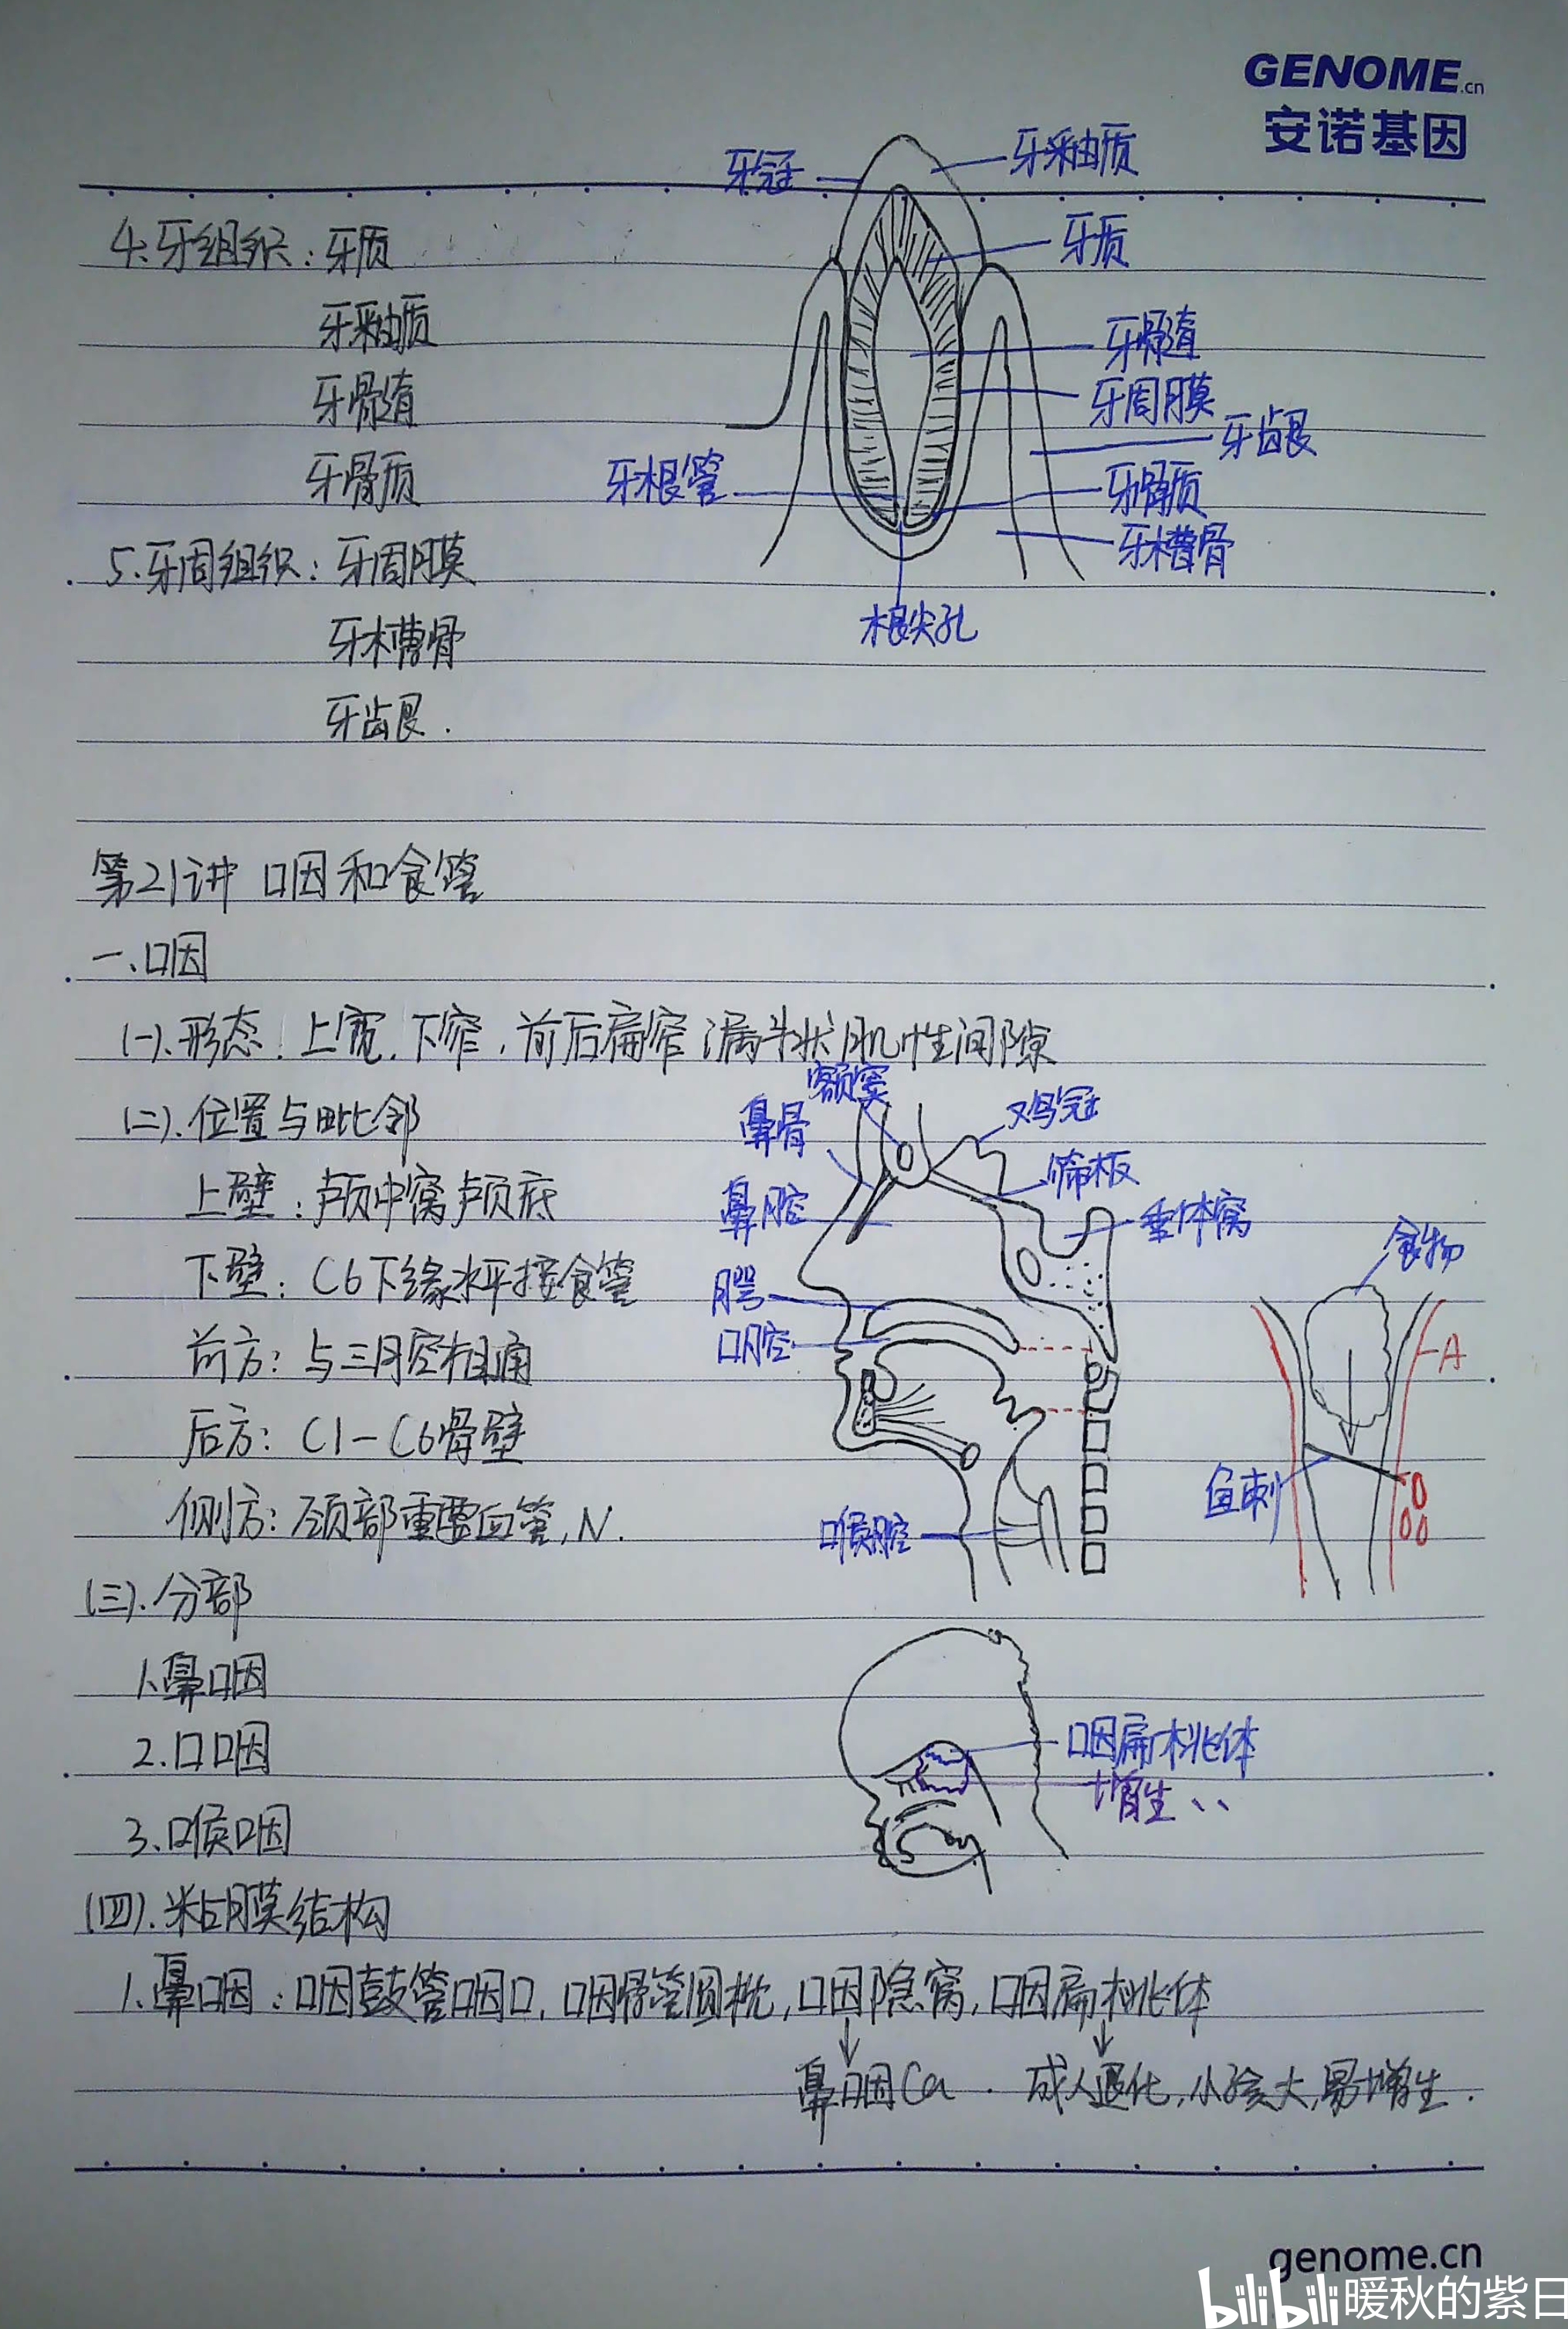 GENOME.cn
安诺基因
牙冠
牙釉质
4.牙组织:牙质
牙质
牙釉质
牙髓
牙髓
牙周膜
牙龈
牙骨质
牙根管
牙骨质
牙槽骨
5.牙周组织:牙周膜
根尖孔
牙槽骨
牙龈.
第21讲 咽和食管
一、咽
(一).形态:上宽.下窄,前后扁窄漏斗状肌性间隙
额窦
鸡冠
(二).位置与毗邻
鼻骨
筛板
上壁:颅中窝颅底
鼻腔
垂体窝
食物
下壁:C6下缘水平接食管
腭
前方:与三腔相通
口腔
A
后方:C1-C6骨壁
鱼刺
侧方:颈部重要血管,N.
喉腔
(三).分部
1.鼻咽
2.口咽
咽扁桃体
增生、、
3.喉咽
(四).粘膜结构
1.鼻咽:咽鼓管咽口,咽骨管圆枕,咽隐窝,咽扁桃体
↓ ↓
鼻咽Ca. 成人退化,小孩大,易增生.
genome.cn
bilibili 暖秋的紫日